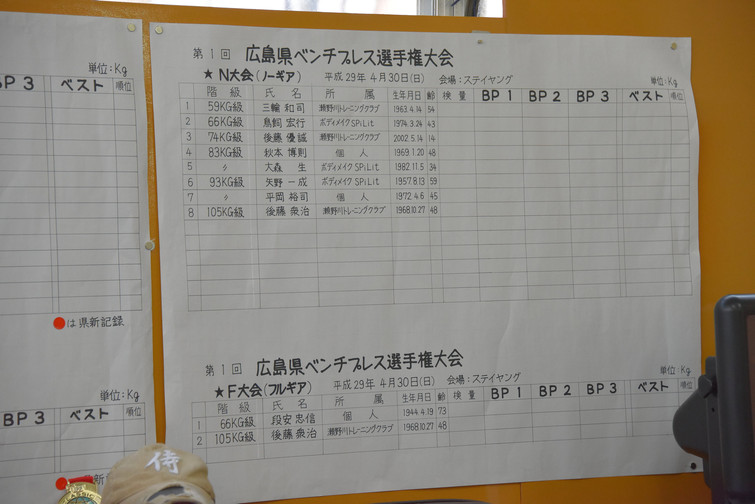 単位:Kg
BP 3 ベスト 順位
●は県新記録
単位:Kg
BP 3 ベスト 順位
第1回 広島県ベンチプレス選手権大会
★ N大会(ノーギア) 平成29年4月30日(日) 会場:ステイヤング 単位:Kg
階級 氏名 所属 生年月日 齢 検量 BP 1 BP 2 BP 3 ベスト 順位
1 59KG級 三輪 和司 瀬野川トレーニングクラブ 1963.4.14 54
2 66KG級 鳥飼 宏行 ボディメイクSPiLit 1974.3.24 43
3 74KG級 後藤 優誠 瀬野川トレーニングクラブ 2002.5.14 14
4 83KG級 秋本 博則 個人 1969.1.20 48
5 〃 大森 生 ボディメイクSPiLit 1982.11.5 34
6 93KG級 矢野 一成 ボディメイクSPiLit 1957.8.13 59
7 〃 平岡 裕司 個人 1972.4.6 45
8 105KG級 後藤 衆治 瀬野川トレーニングクラブ 1968.10.27 48
第1回 広島県ベンチプレス選手権大会
★ F大会(フルギア) 平成29年4月30日(日) 会場:ステイヤング 単位:Kg
階級 氏名 所属 生年月日 齢 検量 BP 1 BP 2 BP 3 ベスト 順位
1 66KG級 段安 忠信 個人 1944.4.19 73
2 105KG級 後藤 衆治 瀬野川トレーニングクラブ 1968.10.27 48
侍